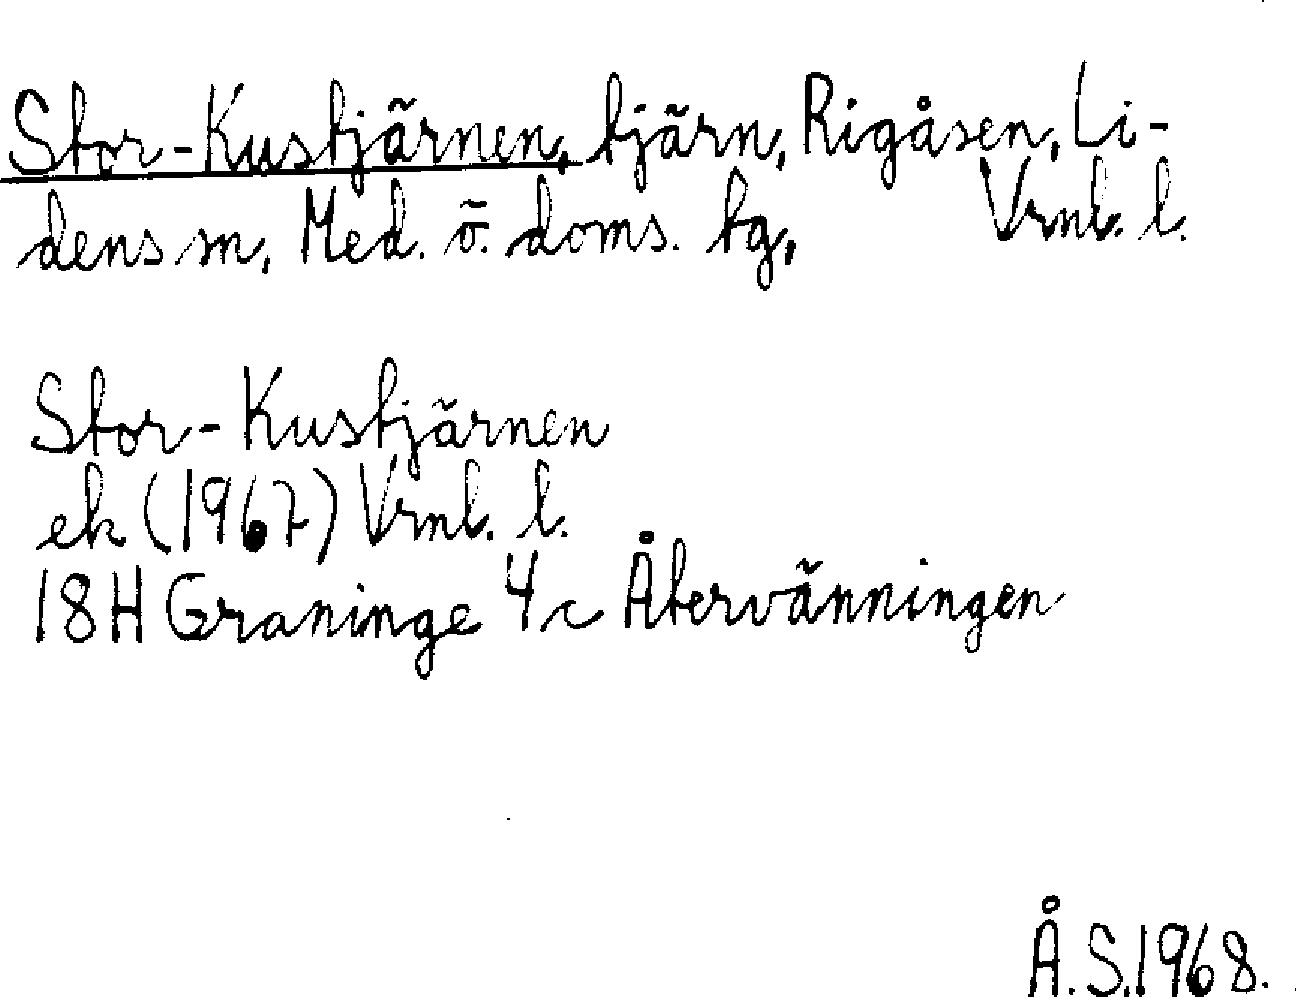 Stor-Kustjärnen, tjärn, Rigåsen, Li-
dens sn, Med. ö. doms. tg, Vrml. l.
Stor-Kustjärnen
ek (1967) Vrml. l.
18H Graninge 4c Återvänningen
Å.S.1968.